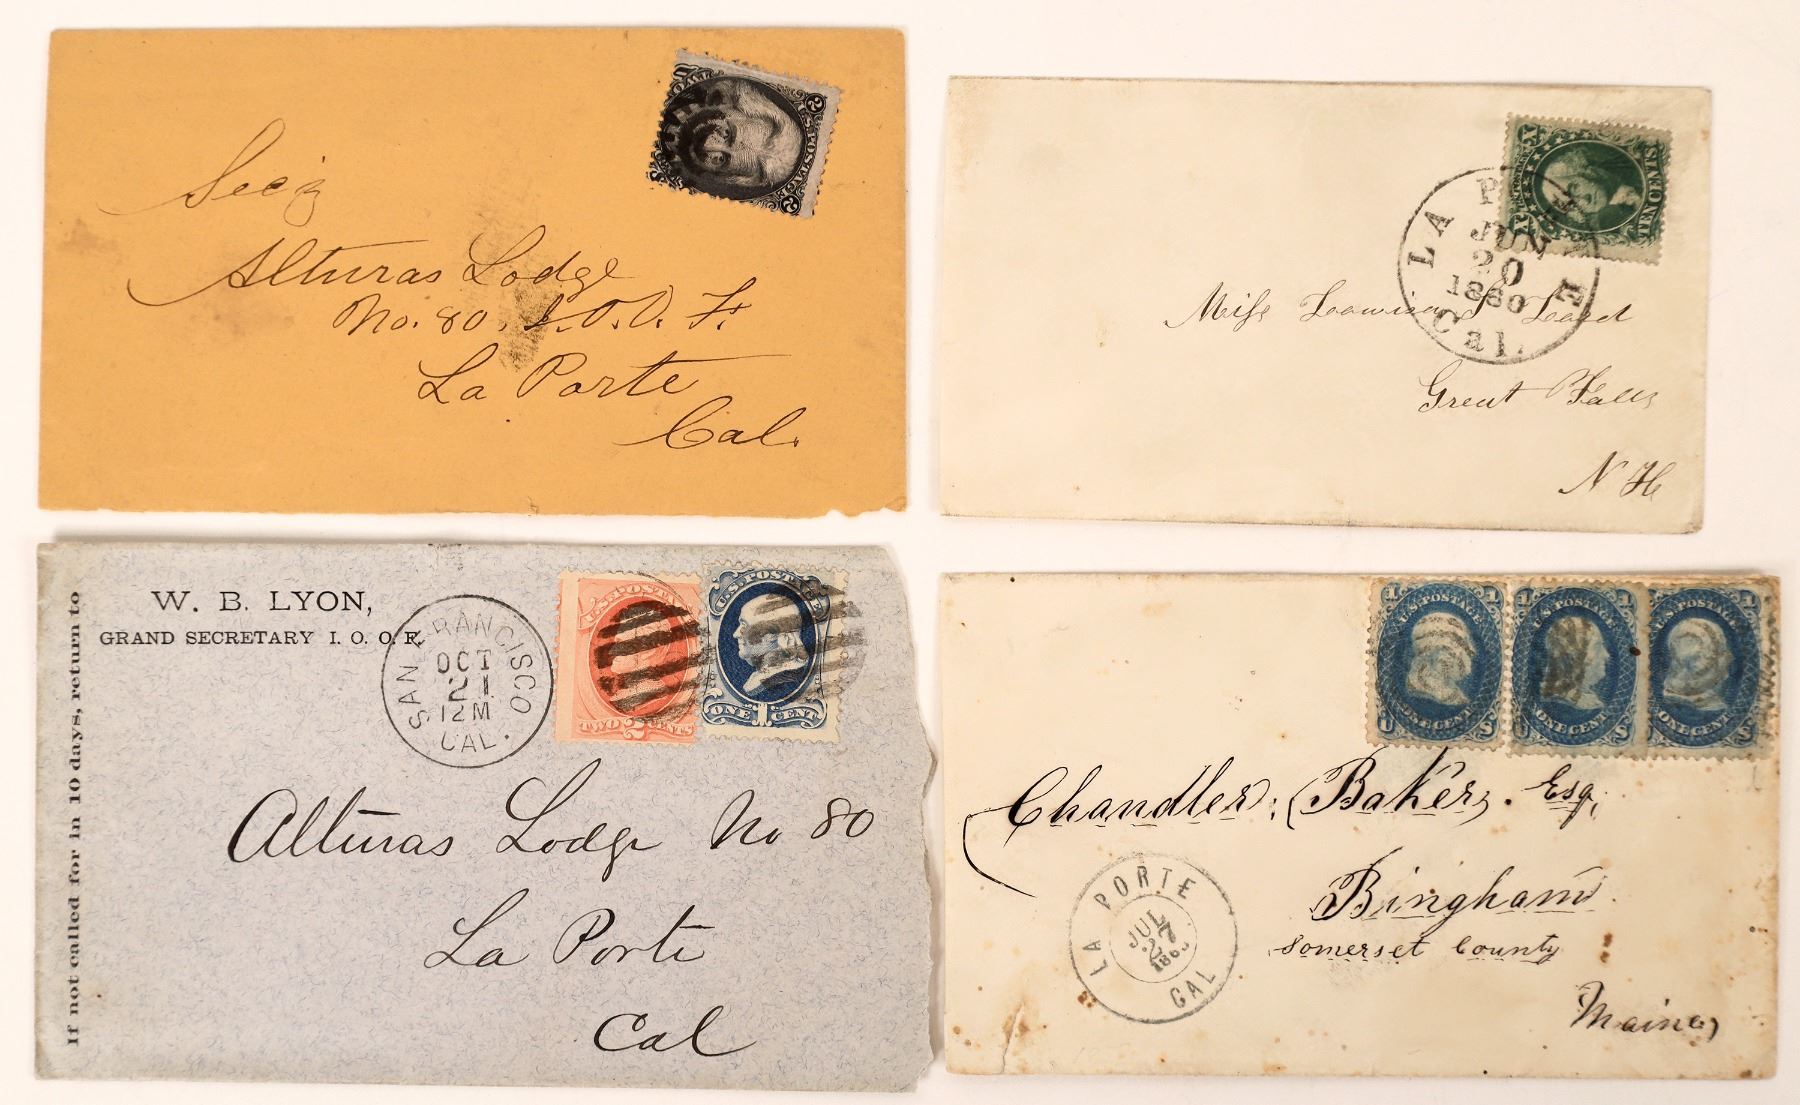 Sec'y
Alturas Lodge
No. 80, I.O.O.F.
La Porte
Cal.
2
U.S. POSTAGE
2
TEN CENTS
X
X
LA P E
JUN
20
1860
Cal.
Miss Louisa S Lord
Great Falls
N H
If not called for in 10 days, return to
W. B. LYON,
GRAND SECRETARY I. O. O. F.
SAN FRANCISCO
OCT
21
12 M
CAL.
U.S. POSTAGE
TWO 2 CENTS
U.S. POSTAGE
ONE 1 CENT
Alturas Lodge No 80
La Porte
Cal
1 U.S. POSTAGE 1
U ONE CENT S
1 U.S. POSTAGE 1
U ONE CENT S
U.S. POSTAGE 1
ONE CENT S
Chandler Baker, Esq,
Bingham
Somerset County
Maine,
LA PORTE
JUL
27
CAL